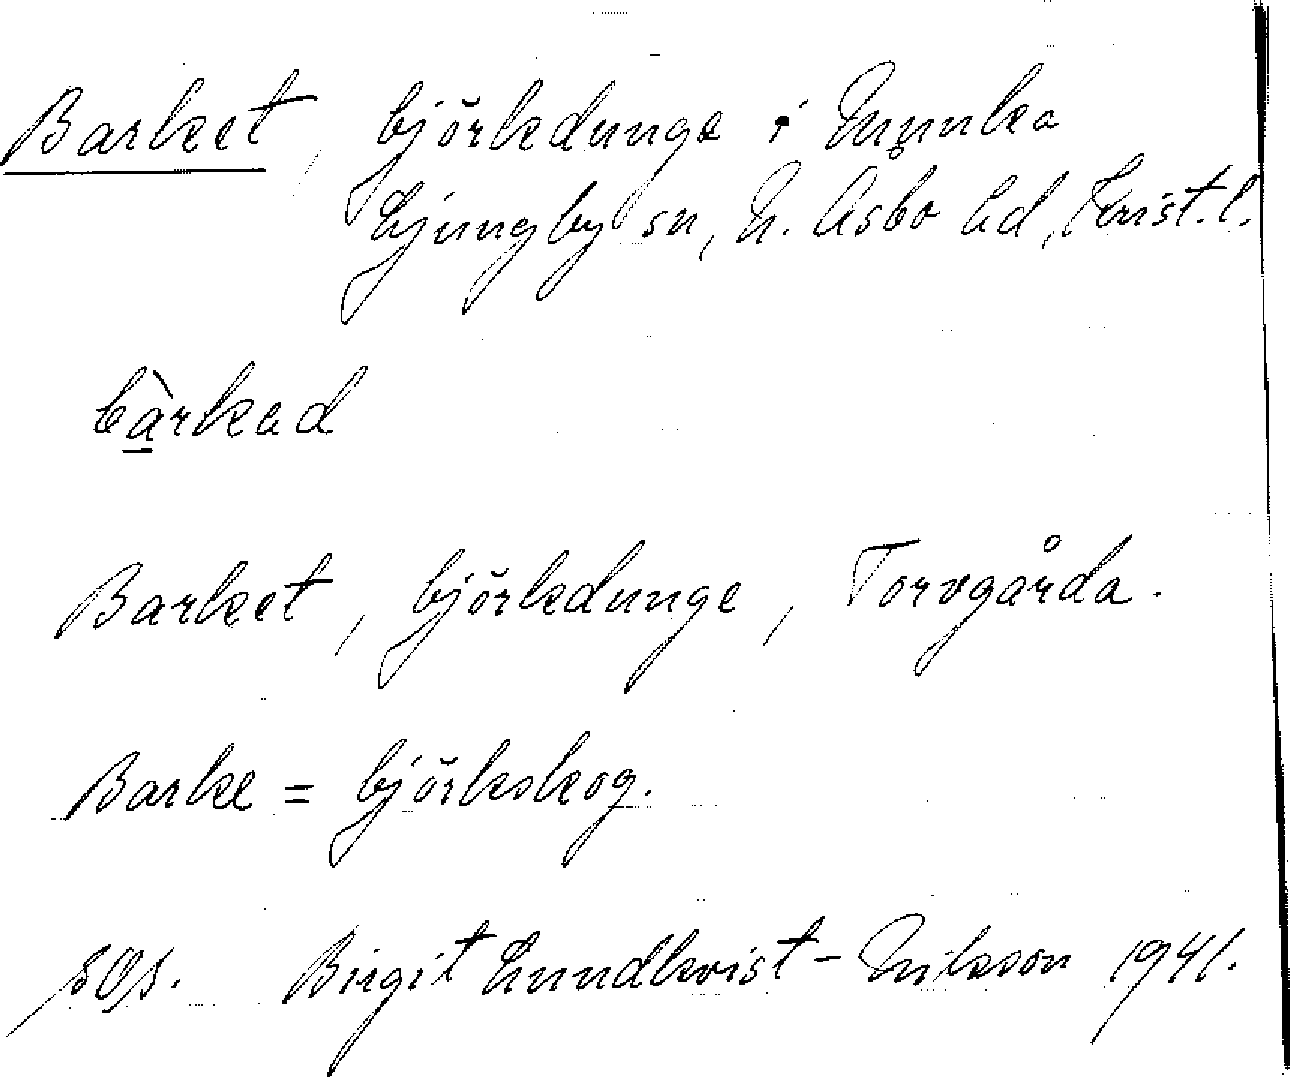 Barket, björkdunge i Munka
Ljungby sn, N. Åsbo hd, Krist. l.
bàrkad
Barket, björkdunge, Torvgårda.
Barke = björkskog.
Birgit Lundkvist-Nilsson 1941.